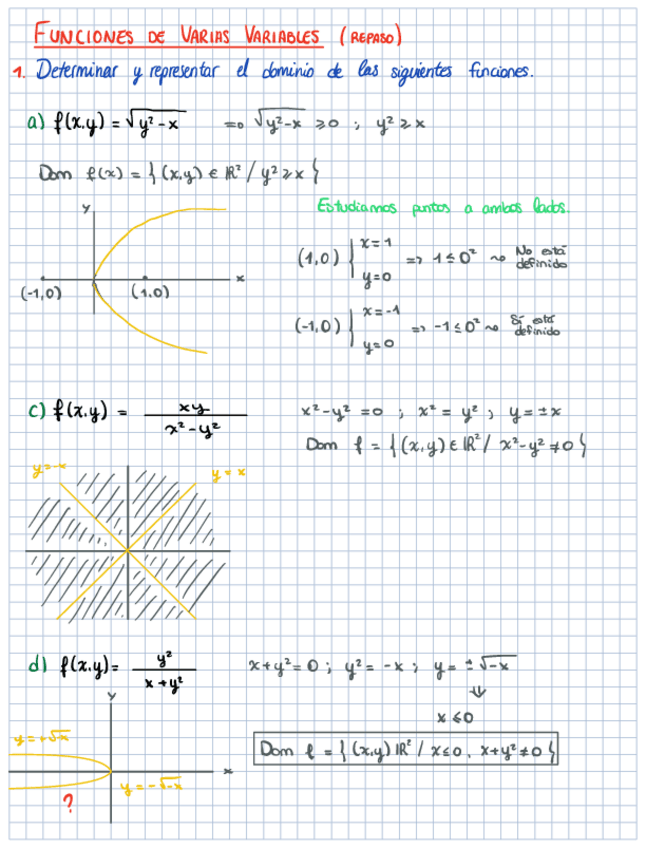 FUNCIONES DE VARIAS VARIABLES (REPASO)
1. Determinar y representar el dominio de las siguientes funciones.
a) f(x,y) = √(y²-x) => √(y²-x) ≥ 0 ; y² ≥ x
Dom f(x) = { (x,y) ∈ ℝ² / y² ≥ x }
Estudiamos puntos a ambos lados.
y
x
(-1,0)
(1,0)
(1,0) { x=1 y=0 => 1 ≤ 0² ~> No está definido
(-1,0) { x=-1 y=0 => -1 ≤ 0² ~> Sí está definido
c) f(x,y) = xy / (x²-y²)
x²-y² = 0 ; x² = y² ; y = ±x
Dom f = { (x,y) ∈ ℝ² / x²-y² ≠ 0 }
y=-x
y = x
d) f(x,y) = y² / (x+y²)
x+y² = 0 ; y² = -x ; y = ±√-x
⇓
x ≤ 0
Dom f = { (x,y) ℝ² / x ≤ 0, x+y² ≠ 0 }
y
x
y=+√-x
y=-√-x
?